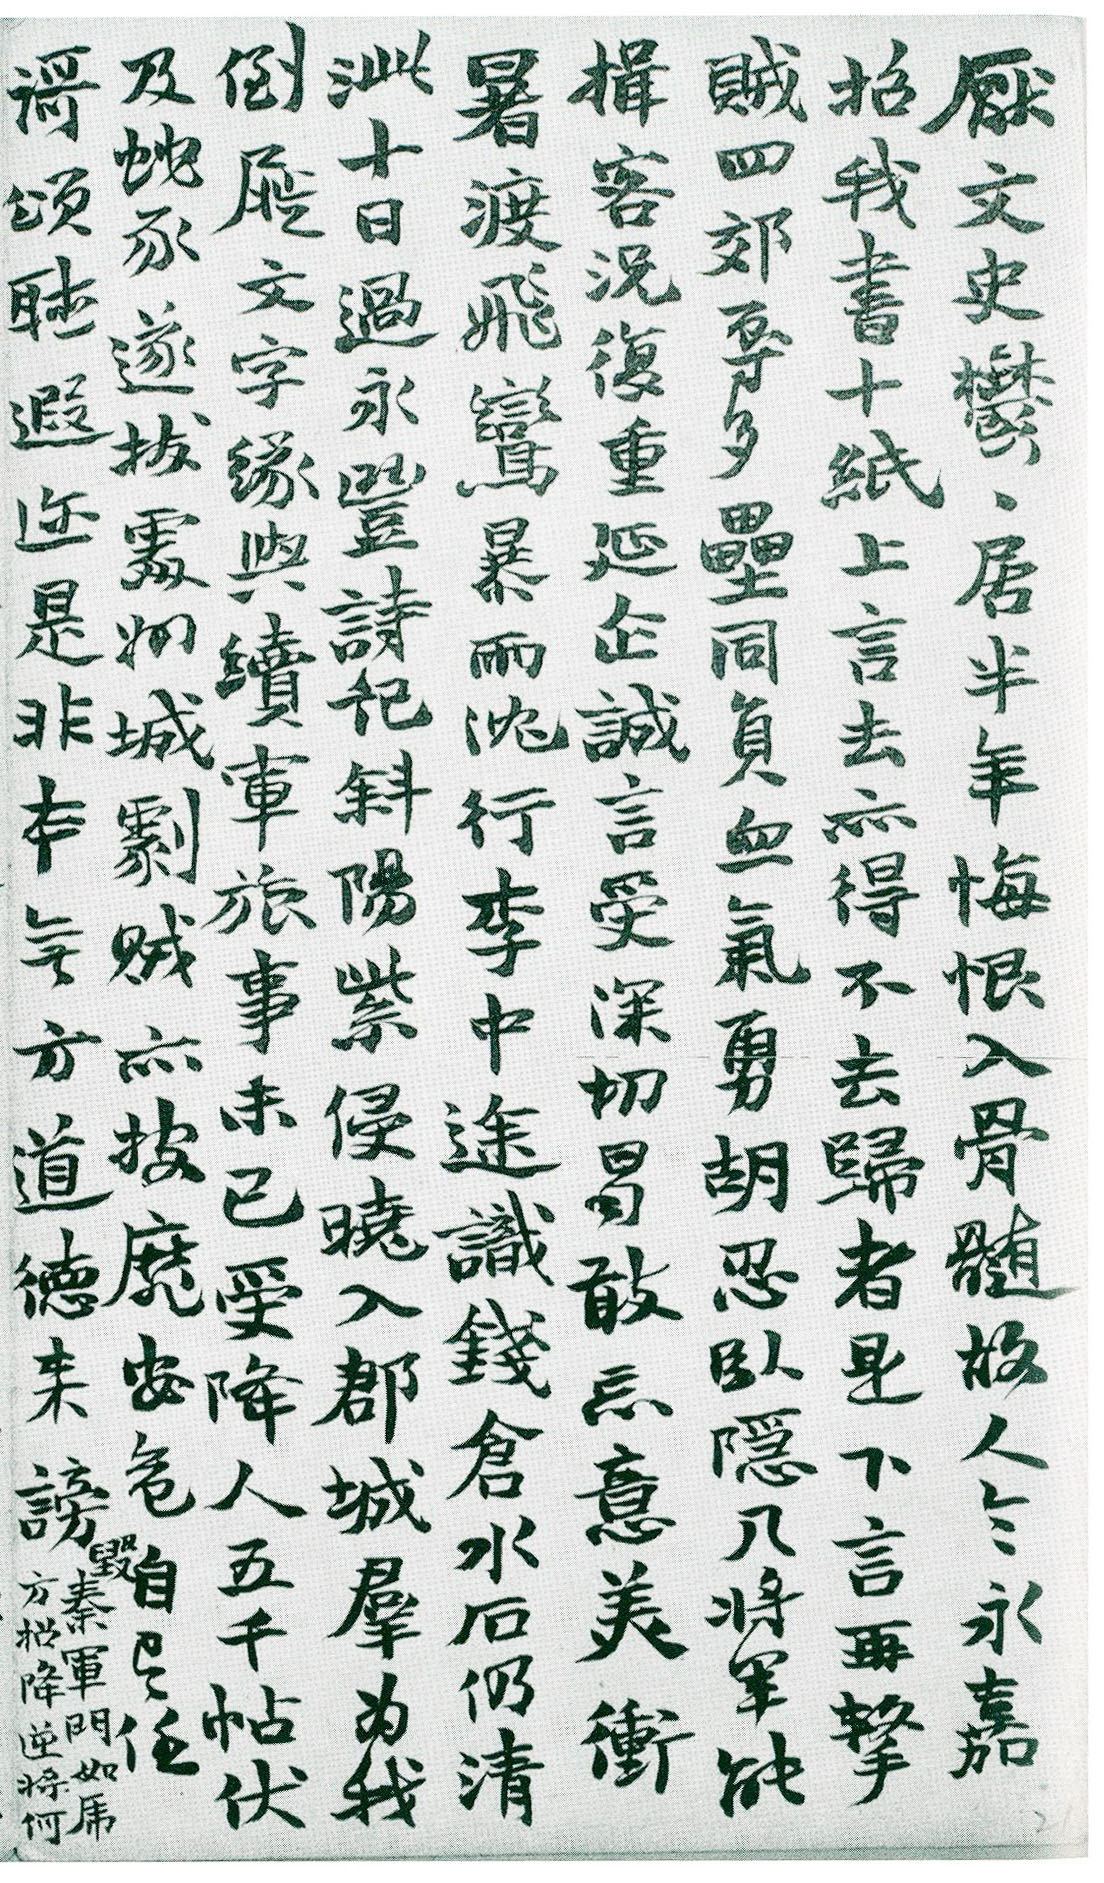 厭文史鬱、居半年悔恨入骨髓故人令永嘉
招我書十紙上言去亦得不去歸者是下言再擎
賊四郊辱多壘同負血氣勇胡忍臥隱几將軍能
揖客況復重延企誠言受深切曷敢忘意美衝
暑渡飛鸞暴雨沈行李中途識錢倉水石仍清
泚十日過永豐詩記斜陽紫侵曉入郡城羣為我
倒屣文字緣與續軍旅事未已受降人五千帖伏
及蛇豕遂拔處州城劇賊亦披靡安危自任
謌頌聽遐迩是非本無方道德来謗毀
秦軍門如虎
方招降逆將何